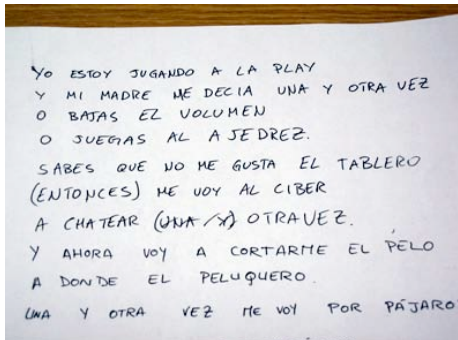 Yo ESTOY JUGANDO A LA PLAY
Y MI MADRE ME DECIA UNA Y OTRA VEZ
O BAJAS EL VOLUMEN
O JUEGAS AL AJEDREZ.
SABES QUE NO ME GUSTA EL TABLERO
(ENTONCES) ME VOY AL CIBER
A CHATEAR (UNA /X) OTRA VEZ.
Y AHORA VOY A CORTARME EL PELO
A DONDE EL PELUQUERO.
UNA Y OTRA VEZ ME VOY POR PÁJARO